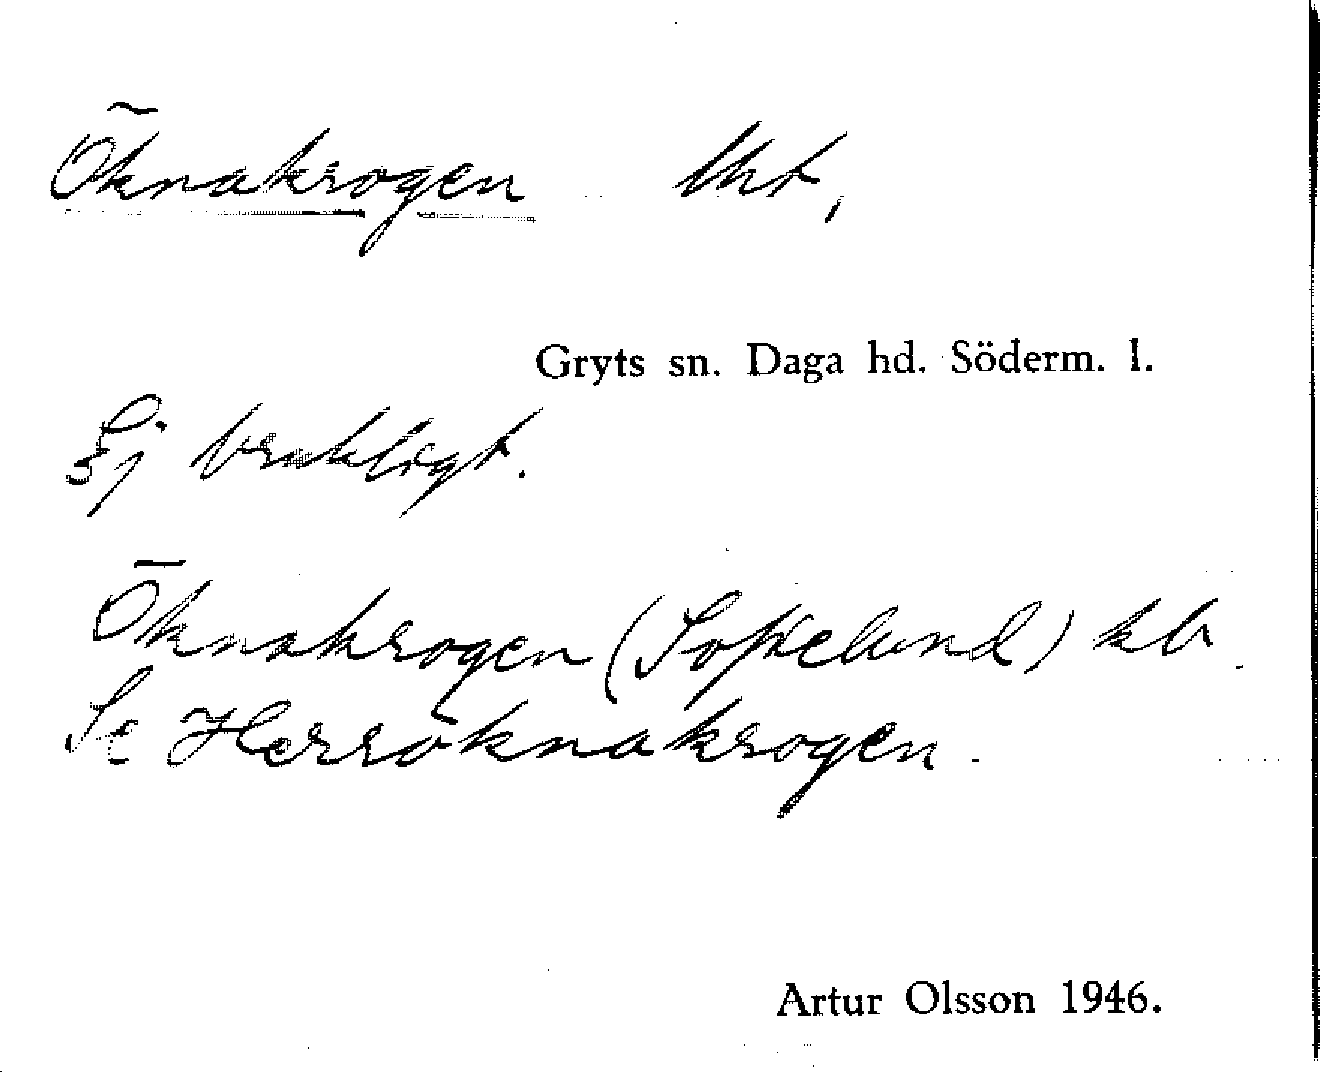 Öknakrogen lht,
Gryts sn. Daga hd. Söderm. l.
Ej brukligt.
Öknakrogen (Sofielund) kbr.
Se Herröknakrogen.
Artur Olsson 1946.